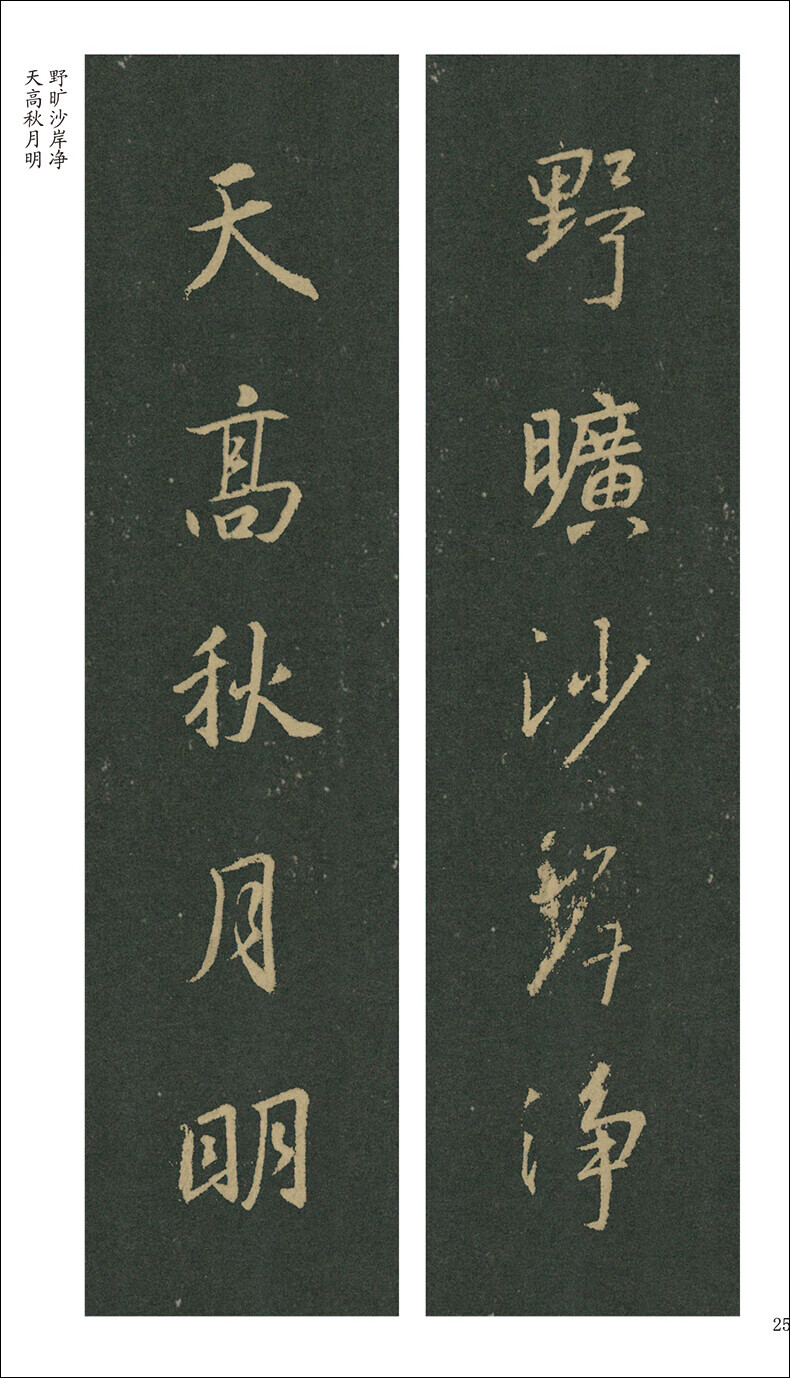 野旷沙岸净
天高秋月明
野曠沙岸淨
天高秋月明
25